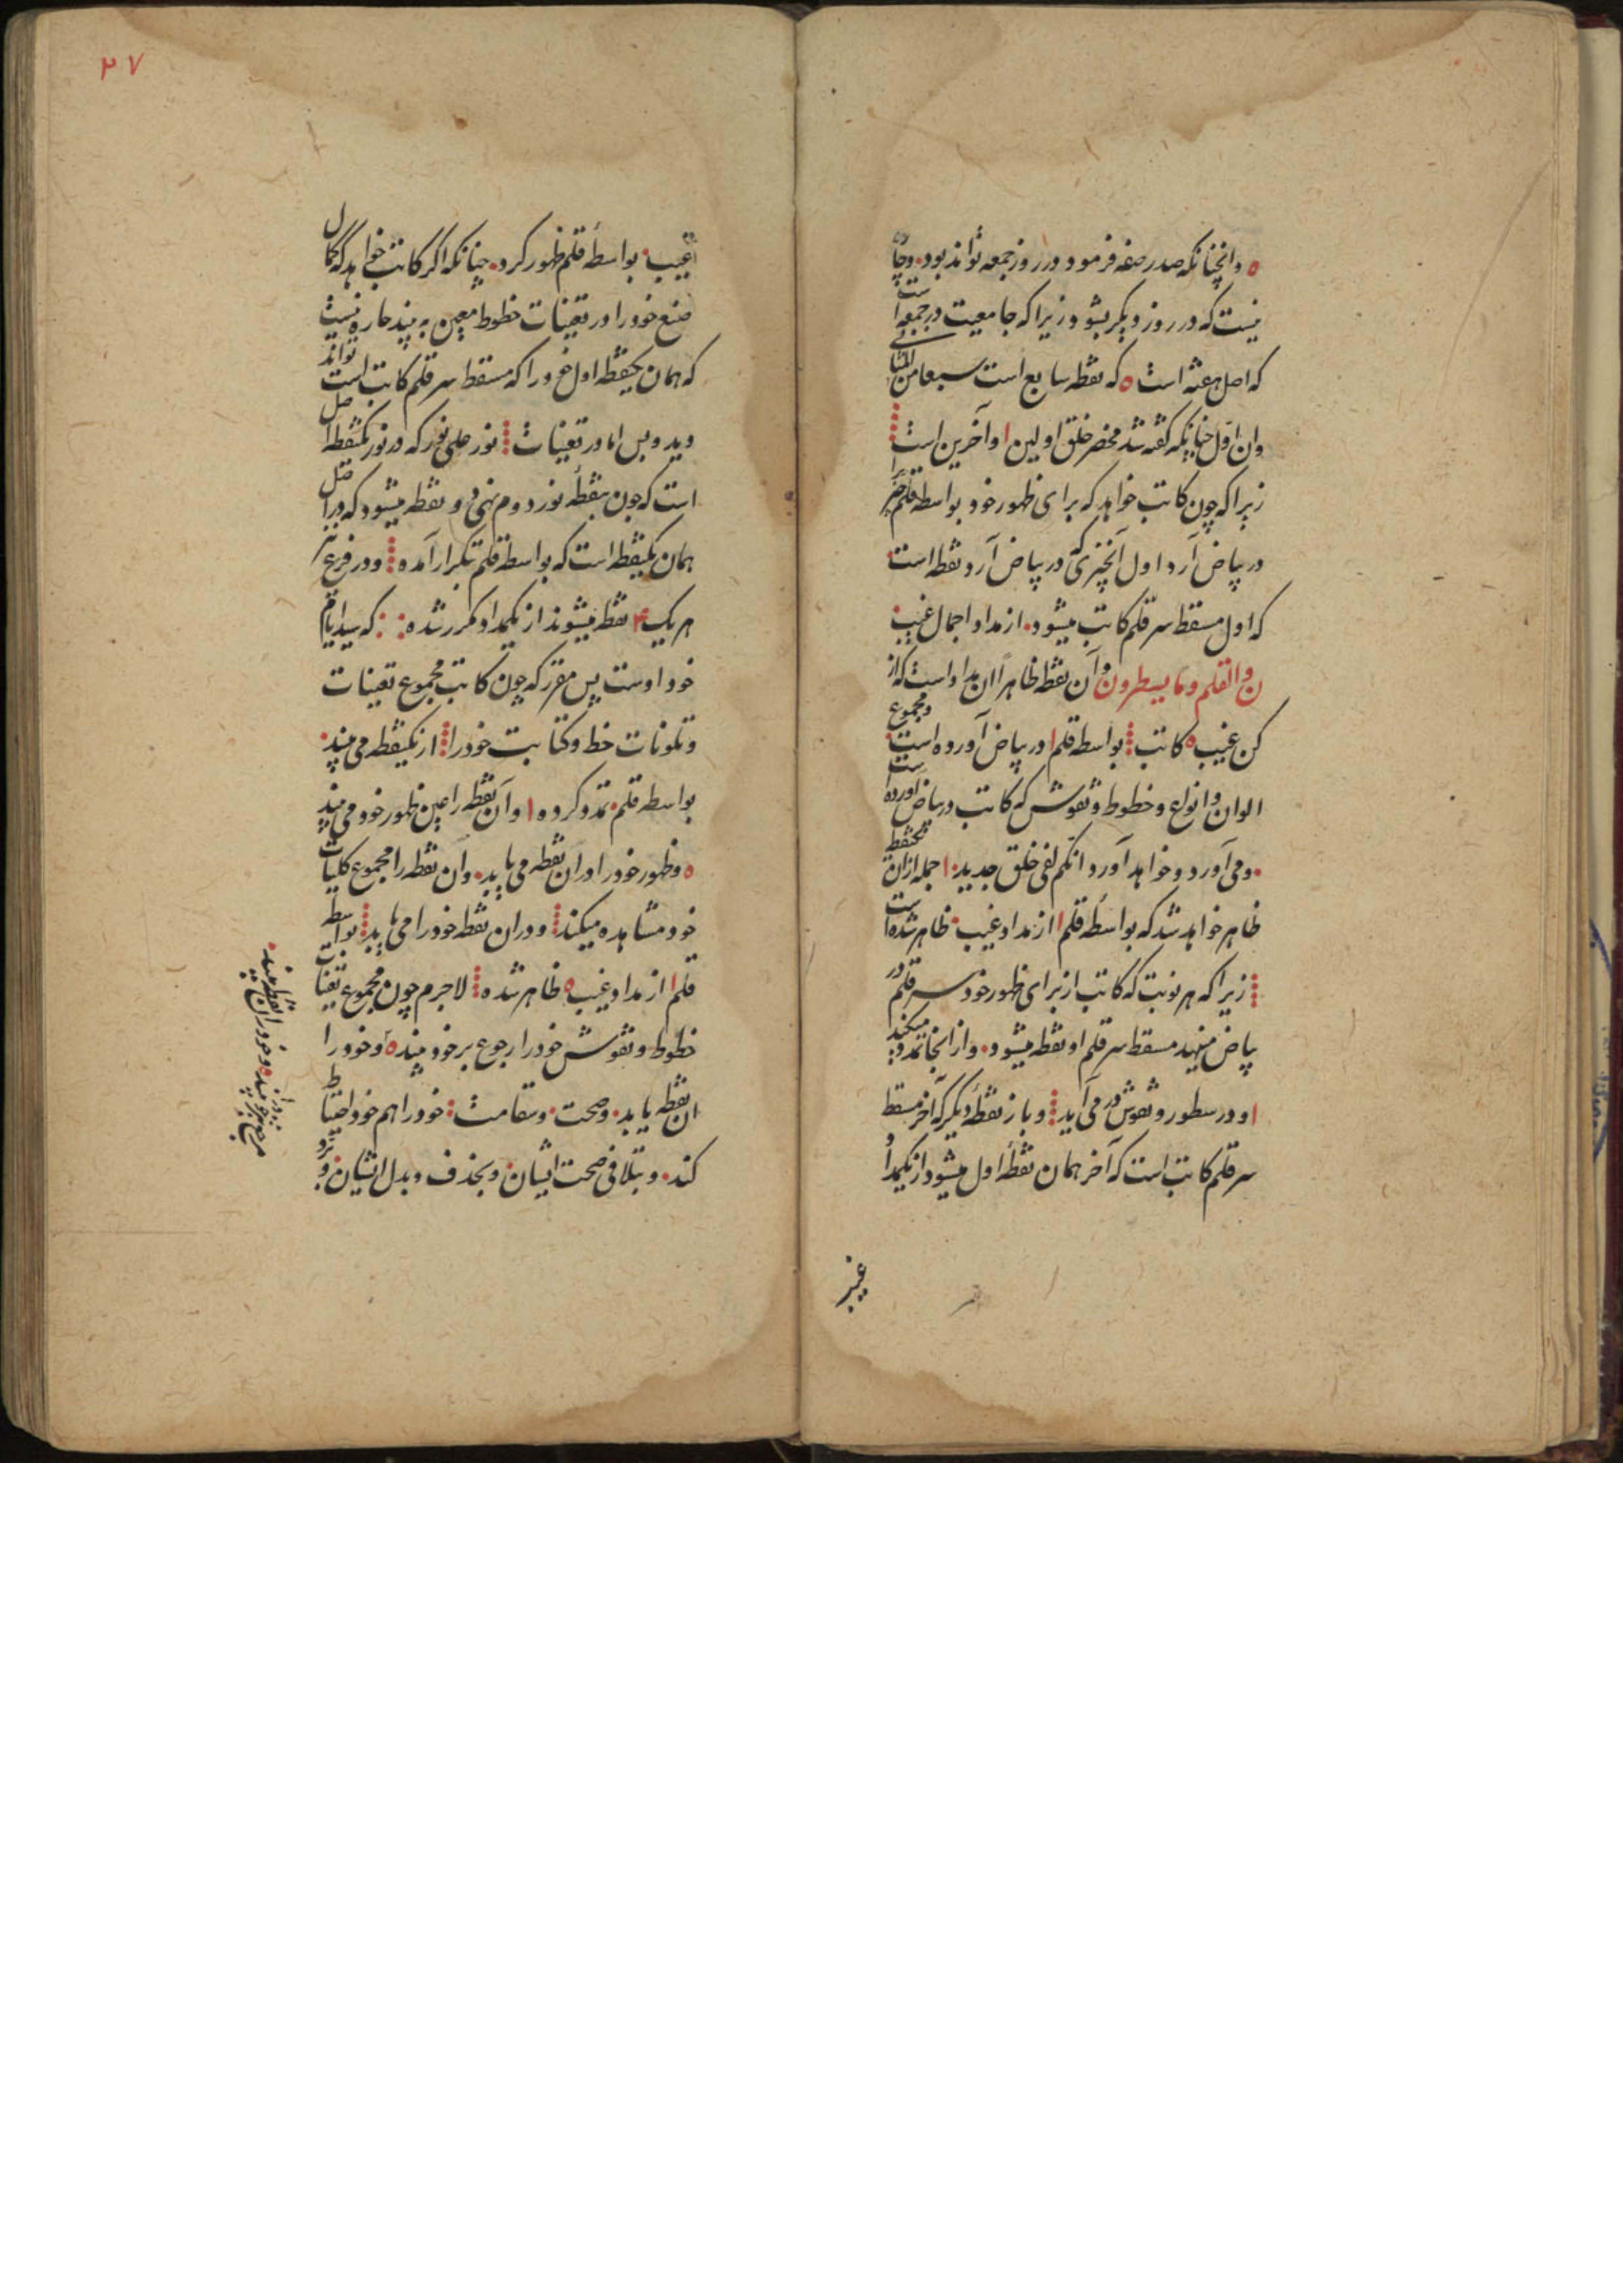 ه وانچنانکه صدر صفه فرمود در روز جمعه تواند بود. و
نیست که در روز دیکر بشود زیرا که جامعیت در جمعه است
که اصل هفته است ه که نقطه سابع است سبعا من المثانی
وان اول چنانکه کفته شد مخصر خلق اولین ا و آخرین است
زیرا که چون کاتب خواهد که برای ظهور خود بواسطه قلم
در بیاض آرد اول آنچیزی که در بیاض آرد نقطه است
که اول مسقط سر قلم کاتب میشود. از مداد اجمال غیب
ن والقلم وما یسطرون و آن نقطه ظاهرا ان مداد است که از
کن غیب ه کاتب بواسطه قلم ا در بیاض آورده است و مجموع
الوان و انواع و خطوط و نقوش که کاتب در بیاض آورده است
. ومی آورد و خواهد آورد انکم لفی خلق جدید. ا جمله از ان
ظاهر خواهد شد که بواسطه قلم ا از مداد غیب ظاهر شده است
زیرا که هر نوبت که کاتب از برای ظهور خود سر قلم در
بیاض مینهد مسقط سر قلم او نقطه میشود. و از انجا میکند
ا و در سطور و نقوش در می آید و باز نقطه دیکر که آخر مسقط
سر قلم کاتب است که آخر همان نقطه اول میشود از یکمداد
۲۷
غیب بواسطه قلم ظهور کرد. چنانکه اکر کاتب خواهد که کمال
صنع خود را در تعینات خطوط معین به بیند چاره نیست
که همان یکنقطه اول خود را که مسقط سر قلم کاتب است تواند
دید و بس اما در تعینات نور علی نور که در نور یکنقطه اصل
است که چون نقطه نور دوم نهی دو نقطه میشود که در اصل
همان یکنقطه است که بواسطه قلم تکرار آمده و در فرع نیز
هر یک ۳ نقطه میشوند از یکمداد مکرر شده که
خود اوست پس مقرر که چون کاتب مجموع تعینات
و تلونات خط و کتابت خود را از یکنقطه می بیند
بواسطه قلم. تمدد کرده ا و آن نقطه را عین ظهور خود می بیند
ه و ظهور خود را در ان نقطه می یابد. و آن نقطه را مجموع کلیات
خود مشاهده میکند و در ان نقطه خود را می یابد بواسطه
قلم ا از مداد غیب ه ظاهر شده لاجرم چون مجموع تعینات
خطوط و نقوش خود را رجوع بر خود بیند ه و خود را
ان نقطه یابد. و صحت. و سقامت خود را هم خود احتیاط
کند. و بتلافی صحت ایشان. و بحذف و بدل ایشان